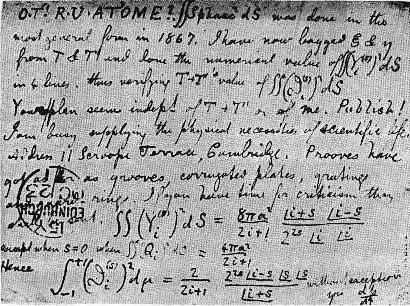 O.T'. R. U. AT 'OME? ∬ Spharc² dS was done in the
most general form in 1867. I have now bagged ξ & η
from T & T' and done the numerical value of ∬(Yᵢ⁽ˢ⁾)² dS
in 4 lines. thus verifying T+T''s value of ∬(ϑᵢ⁽ˢ⁾)² dS
Your plan seems indept of T + T' or of me. Publish!
I am busy supplying the physical necessities of scientific life
address 11 Scroope Terrace, Cambridge. Prooves have
got as far as grooves, corrugated plates, grating
and rings. If you have time for criticism then
∬(Yᵢ⁽ˢ⁾)² dS = 8πa²/(2i+1) |i+s |i-s / 2²ˢ |i |i
except when s=0 when ∬(Qᵢ)² dS = 4πa²/(2i+1)
Hence
∫₋₁⁺¹ (ϑᵢ⁽ˢ⁾)² dμ = 2/(2i+1) 2²ˢ |i-s |s |s / |i+s without exception
yrs dp/dt
EDINBURGH